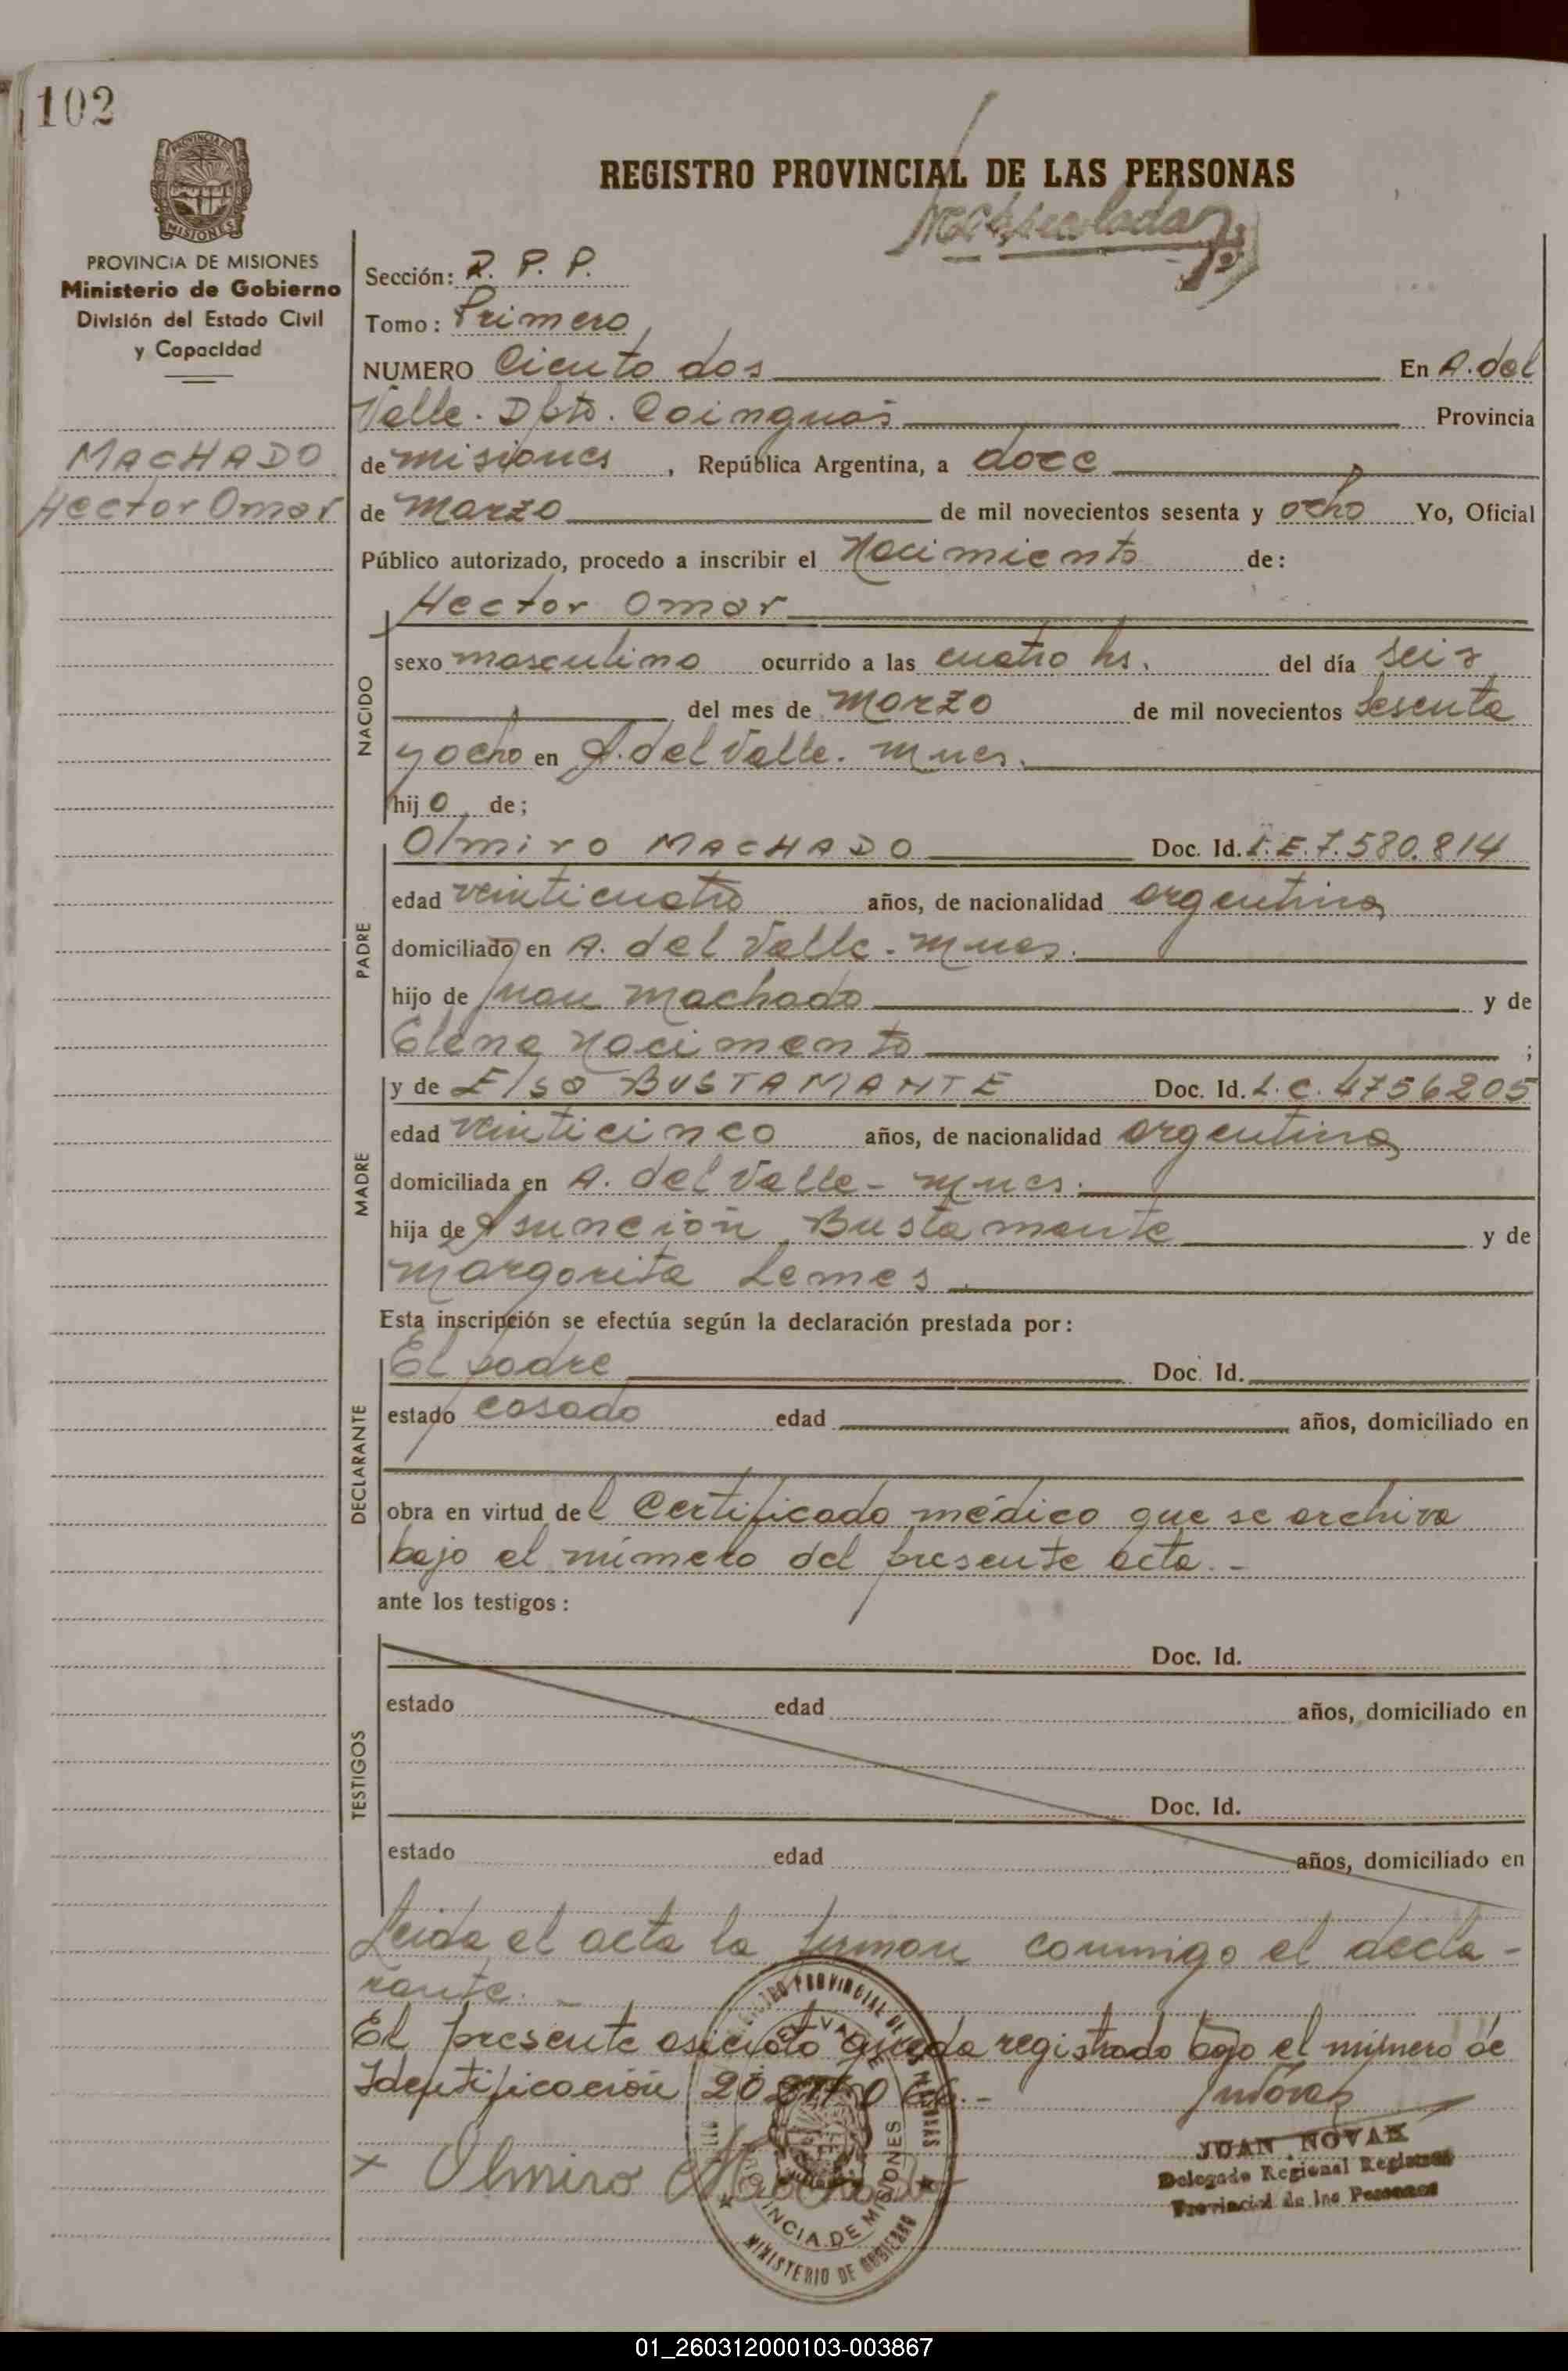 102
REGISTRO PROVINCIAL DE LAS PERSONAS
PROVINCIA DE MISIONES
Ministerio de Gobierno
División del Estado Civil
y Capacidad
MACHADO
Hector Omar
Sección: R. P. P.
Tomo: Primero
NUMERO Ciento dos En A. del
Valle. Dpto. Cainguas Provincia
de misiones, República Argentina, a doce
de marzo de mil novecientos sesenta y ocho Yo, Oficial
Público autorizado, procedo a inscribir el Nacimiento de:
Hector Omar
NACIDO
sexo masculino ocurrido a las cuatro hs. del día seis
del mes de marzo de mil novecientos sesenta
y ocho en A. del Valle. Mnes.
hijo de;
PADRE
Olmiro MACHADO Doc. Id. L.E. 7.580.814
edad veinticuatro años, de nacionalidad argentina
domiciliado en A. del Valle. Mnes.
hijo de Juan Machado y de
Elena Nacimento ;
MADRE
y de Elsa BUSTAMANTE Doc. Id. L.C. 4756205
edad veinticinco años, de nacionalidad argentina
domiciliada en A. del Valle - Mnes.
hija de Asunción Bustamante y de
Margarita Lemes
Esta inscripción se efectúa según la declaración prestada por:
DECLARANTE
El padre Doc. Id.
estado casado edad años, domiciliado en
obra en virtud del Certificado médico que se archiva
bajo el número del presente acta. -
ante los testigos:
TESTIGOS
Doc. Id.
estado edad años, domiciliado en
Doc. Id.
estado edad años, domiciliado en
Leida el acta la firman conmigo el decla-
rante. -
El presente asiento queda registrado bajo el número de
Identificación
JUAN NOVAK
Delegado Regional Registro
Provincial de las Personas
x Olmiro Machado
PROVINCIAL DE LAS PERSONAS
DEL VALLE
PROVINCIA DE MISIONES
MINISTERIO DE GOBIERNO
01_260312000103-003867